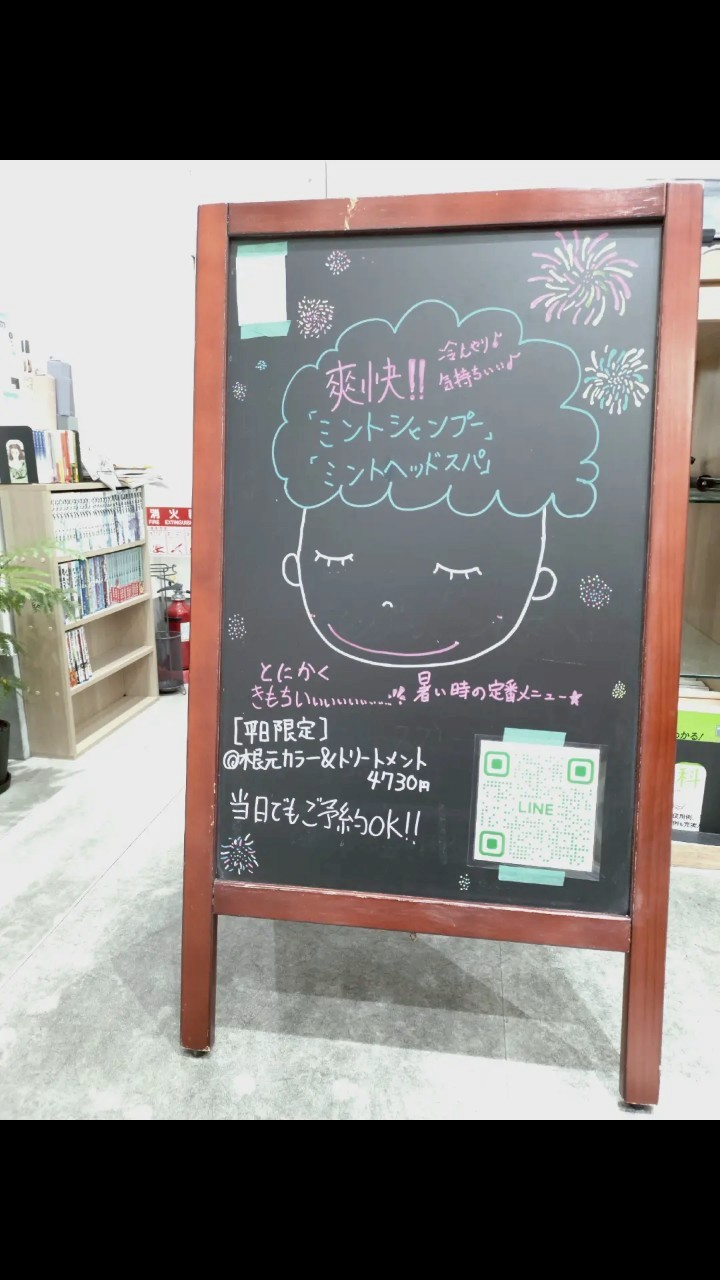 爽快!!
冷んやり♪
気持ちいい♪
「ミントシャンプー」
「ミントヘッドスパ」
とにかく
きもちいぃぃぃぃぃ……!!
暑い時の定番メニュー★
[平日限定]
@根元カラー&トリートメント
4730円
当日でもご予約OK!!
LINE
消火
FIRE EXTINGUISH
かる!
科